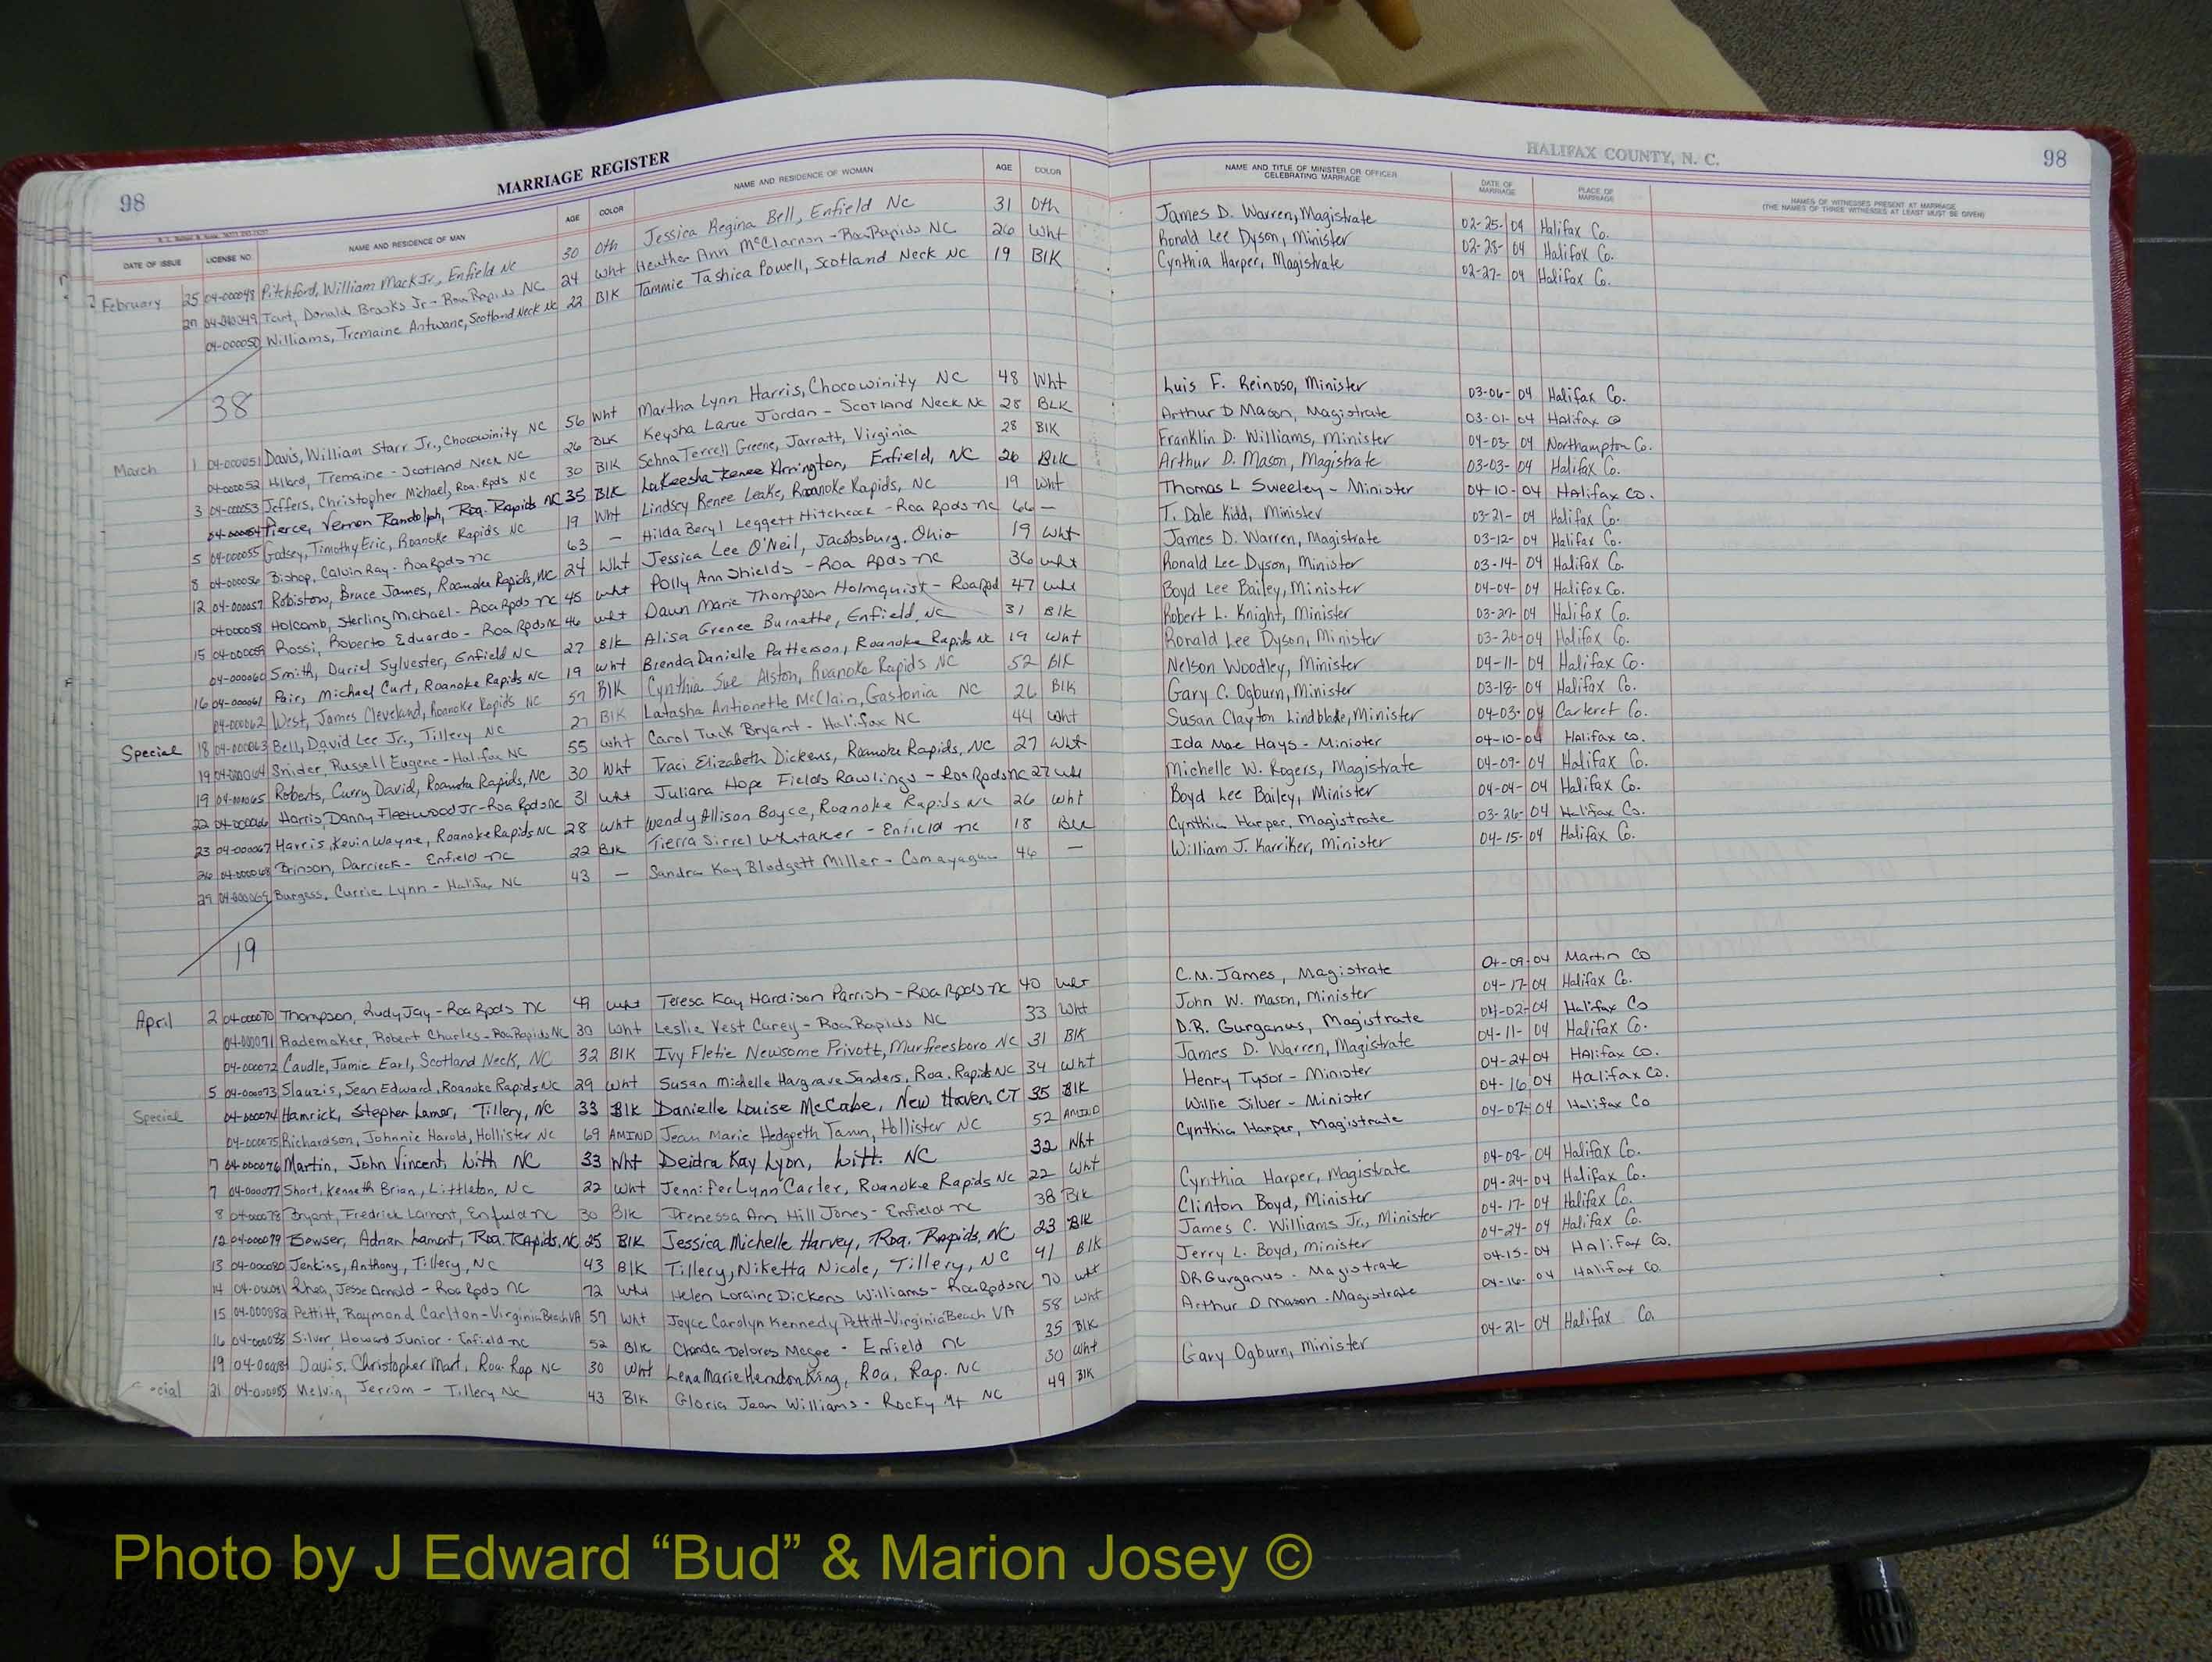 98 MARRIAGE REGISTER
DATE OF ISSUE LICENSE NO. NAME AND RESIDENCE OF MAN AGE COLOR NAME AND RESIDENCE OF WOMAN AGE COLOR
February 25 04-000048 Pitchford, William Mack Jr., Enfield NC 30 Oth Jessica Regina Bell, Enfield NC 31 Oth
27 04-000049 Tart, Donald Brooks Jr - Roa Rapids NC 24 Wht Heather Ann McClarnon - Roa Rapids NC 26 Wht
04-000050 Williams, Tremaine Antwane, Scotland Neck NC 22 Blk Tammie Tashica Powell, Scotland Neck NC 19 Blk
38
March 1 04-000051 Davis, William Starr Jr., Chocowinity NC 56 Wht Martha Lynn Harris, Chocowinity NC 48 Wht
04-000052 Tremaine - Scotland Neck NC 26 BLK Keysha Larue Jordan - Scotland Neck NC 28 BLK
3 04-000053 Jeffers, Christopher Michael, Roa. Rpds NC 30 Blk Terrell Greene, Jarratt, Virginia 28 Blk
04-000054 Pierce, Vernon Randolph, Roa. Rapids NC 35 Blk LaKeesha Renee Arrington, Enfield, NC 26 Blk
5 04-000055 Timothy Eric, Roanoke Rapids NC 19 Wht Lindsey Renee Leake, Roanoke Rapids, NC 19 Wht
8 04-000056 Bishop, Calvin Ray - Roa Rpds NC 63 — Hilda Beryl Leggett Hitchcock - Roa Rpds NC 66 —
12 04-000057 Robistow, Bruce James, Roanoke Rapids, NC 24 Wht Jessica Lee O'Neil, Jacobsburg, Ohio 19 Wht
04-000058 Holcomb, Sterling Michael - Roa Rpds NC 45 Wht Polly Ann Shields - Roa Rpds NC 36 Wht
15 04-000059 Rossi, Roberto Eduardo - Roa Rpds NC 46 Wht Dawn Marie Thompson Holmquist - Roa Rpd 47 Wht
04-000060 Smith, Dariel Sylvester, Enfield NC 27 Blk Alisa Grenee Burnette, Enfield, NC 31 Blk
16 04-000061 Pair, Michael Curt, Roanoke Rapids NC 19 Wht Brenda Danielle Patterson, Roanoke Rapids NC 19 Wht
04-000062 West, James Cleveland, Roanoke Rapids NC 57 Blk Cynthia Sue Alston, Roanoke Rapids NC 52 Blk
Special 18 04-000063 Bell, David Lee Jr., Tillery NC 27 Blk Latasha Antionette McClain, Gastonia NC 26 Blk
19 04-000064 Snider, Russell Eugene - Halifax NC 55 Wht Carol Tuck Bryant - Halifax NC 44 Wht
19 04-000065 Roberts, Curry David, Roanoke Rapids, NC 30 Wht Traci Elizabeth Dickens, Roanoke Rapids, NC 27 Wht
22 04-000066 Harris, Danny Fleetwood Jr - Roa Rpds NC 31 Wht Juliana Hope Fields Rawlings - Roa Rpds NC 27 Wht
23 04-000067 Harris, Kevin Wayne, Roanoke Rapids NC 28 Wht Wendy Allison Boyce, Roanoke Rapids NC 26 Wht
26 04-000068 Brinson, Darrieck - Enfield NC 22 Blk Tierra Sirrel Whitaker - Enfield NC 18 Blk
29 04-000069 Burgess, Currie Lynn - Halifax NC 43 — Sandra Kay Blodgett Miller - Comayagua 46 —
19
April 2 04-000070 Thompson, Rudy Jay - Roa Rpds NC 49 Wht Teresa Kay Hardison Parrish - Roa Rpds NC 40 Wht
04-000071 Rademaker, Robert Charles - Roa Rapids NC 30 Wht Leslie Vest Carey - Roa Rapids NC 33 Wht
04-000072 Caudle, Jamie Earl, Scotland Neck, NC 32 Blk Ivy Fletie Newsome Privott, Murfreesboro NC 31 Blk
5 04-000073 Slauzis, Sean Edward, Roanoke Rapids NC 29 Wht Susan Michelle Hargrave Sanders, Roa. Rapids NC 34 Wht
Special 04-000074 Hamrick, Stephen Lamar, Tillery, NC 33 Blk Danielle Louise McCabe, New Haven, CT 35 Blk
04-000075 Richardson, Johnnie Harold, Hollister NC 69 AMIND Jean Marie Hedgpeth Tann, Hollister NC 52 AMIND
7 04-000076 Martin, John Vincent, Litth NC 33 Wht Deidra Kay Lyon, Litt. NC 32 Wht
7 04-000077 Short, Kenneth Brian, Littleton, NC 22 Wht Jennifer Lynn Carter, Roanoke Rapids NC 22 Wht
8 04-000078 Bryant, Fredrick Lamont, Enfield NC 30 Blk Trenessa Ann Hill Jones - Enfield NC 38 Blk
12 04-000079 Bowser, Adrian Lamont, Roa. Rapids, NC 25 Blk Jessica Michelle Harvey, Roa. Rapids, NC 23 Blk
13 04-000080 Jenkins, Anthony, Tillery, NC 43 Blk Tillery, Niketta Nicole, Tillery, NC 41 Blk
14 04-000081 Rhea, Jesse Arnold - Roa Rpds NC 72 Wht Helen Loraine Dickens Williams - Roa Rpds NC 70 Wht
15 04-000082 Pettitt, Raymond Carlton - Virginia Beach VA 57 Wht Joyce Carolyn Kennedy Pettitt - Virginia Beach VA 58 Wht
16 04-000083 Silver, Howard Junior - Enfield NC 52 Blk Chanda Delores McGee - Enfield NC 35 Blk
19 04-000084 Davis, Christopher Mart, Roa. Rap NC 30 Wht Lena Marie Herndon King, Roa. Rap. NC 30 Wht
cial 21 04-000085 Melvin, Jerrom - Tillery NC 43 Blk Gloria Jean Williams - Rocky Mt NC 49 Blk
HALIFAX COUNTY, N. C. 98
NAME AND TITLE OF MINISTER OR OFFICER CELEBRATING MARRIAGE DATE OF MARRIAGE PLACE OF MARRIAGE NAMES OF WITNESSES PRESENT AT MARRIAGE
(THE NAMES OF THREE WITNESSES AT LEAST MUST BE GIVEN)
James D. Warren, Magistrate 02-25-04 Halifax Co.
Ronald Lee Dyson, Minister 02-28-04 Halifax Co.
Cynthia Harper, Magistrate 02-27-04 Halifax Co.
Luis F. Reinoso, Minister 03-06-04 Halifax Co.
Arthur D Mason, Magistrate 03-01-04 Halifax Co
Franklin D. Williams, Minister 04-03-04 Northampton Co.
Arthur D. Mason, Magistrate 03-03-04 Halifax Co.
Thomas L Sweeley - Minister 04-10-04 Halifax Co.
T. Dale Kidd, Minister 03-21-04 Halifax Co.
James D. Warren, Magistrate 03-12-04 Halifax Co.
Ronald Lee Dyson, Minister 03-14-04 Halifax Co.
Boyd Lee Bailey, Minister 04-04-04 Halifax Co.
Robert L. Knight, Minister 03-27-04 Halifax Co.
Ronald Lee Dyson, Minister 03-20-04 Halifax Co.
Nelson Woodley, Minister 04-11-04 Halifax Co.
Gary C. Ogburn, Minister 03-18-04 Halifax Co.
Susan Clayton Lindblade, Minister 04-03-04 Carteret Co.
Ida Mae Hays - Minister 04-10-04 Halifax Co.
Michelle W. Rogers, Magistrate 04-09-04 Halifax Co.
Boyd Lee Bailey, Minister 04-04-04 Halifax Co.
Cynthia Harper, Magistrate 03-26-04 Halifax Co.
William J. Karriker, Minister 04-15-04 Halifax Co.
C.M. James, Magistrate 04-09-04 Martin Co
John W. Mason, Minister 04-17-04 Halifax Co.
D.R. Gurganus, Magistrate 04-02-04 Halifax Co
James D. Warren, Magistrate 04-11-04 Halifax Co.
Henry Tysor - Minister 04-24-04 Halifax Co.
Willie Silver - Minister 04-16-04 Halifax Co.
Cynthia Harper, Magistrate 04-07-04 Halifax Co
Cynthia Harper, Magistrate 04-08-04 Halifax Co.
Clinton Boyd, Minister 04-24-04 Halifax Co.
James C. Williams Jr., Minister 04-17-04 Halifax Co.
Jerry L. Boyd, Minister 04-24-04 Halifax Co.
DR Gurganus - Magistrate 04-15-04 Halifax Co.
Arthur D Mason - Magistrate 04-16-04 Halifax Co
Gary Ogburn, Minister 04-21-04 Halifax Co.
Photo by J Edward “Bud” & Marion Josey ©